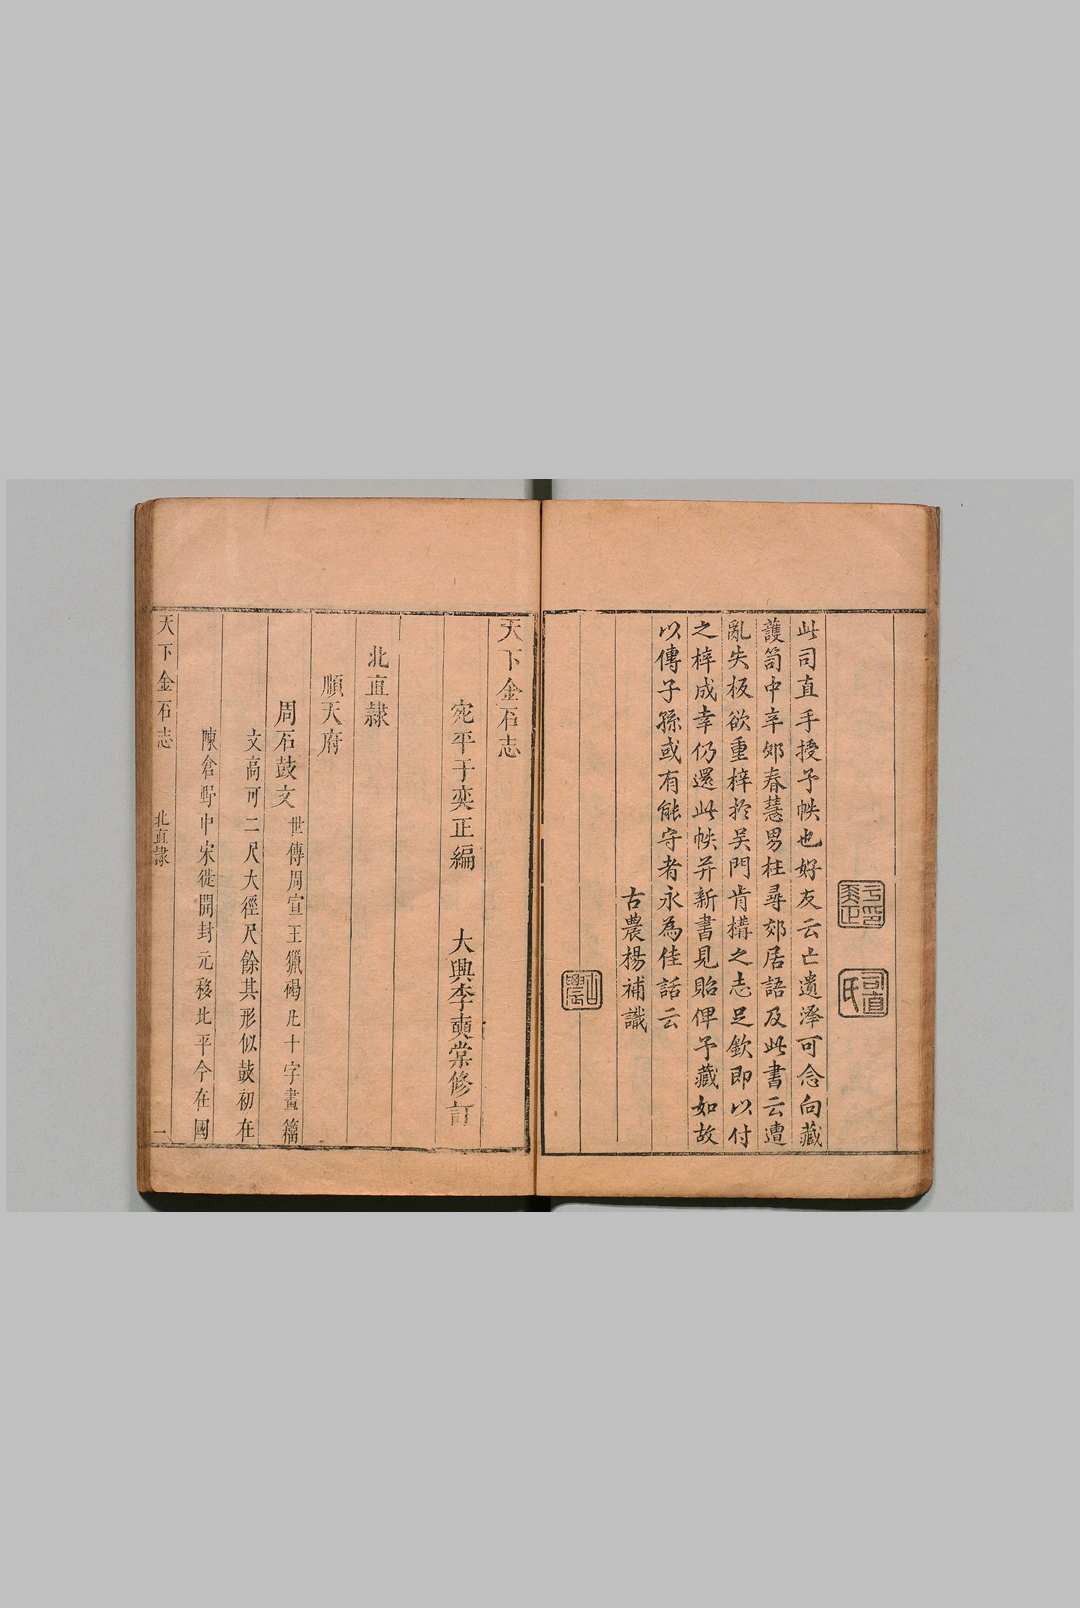 此司直手授予帙也好友云亡遺澤可念向藏
護笥中辛卯春慧男柱尋郊居語及此書云遭
亂失板欲重梓於吴門肯構之志足欽即以付
之梓成幸仍還此帙并新書見貽俾予藏如故
以傳子孫或有能守者永為佳話云
古農楊補識
司直氏
天下金石志
宛平于奕正編 大興李奭棠修訂
北直隷
順天府
周石鼓文 世傳周宣王獵碣凡十字畫籀
文高可二尺大徑尺餘其形似鼓初在
陳倉野中宋徙開封元移北平今在國
天下金石志 北直隷 一